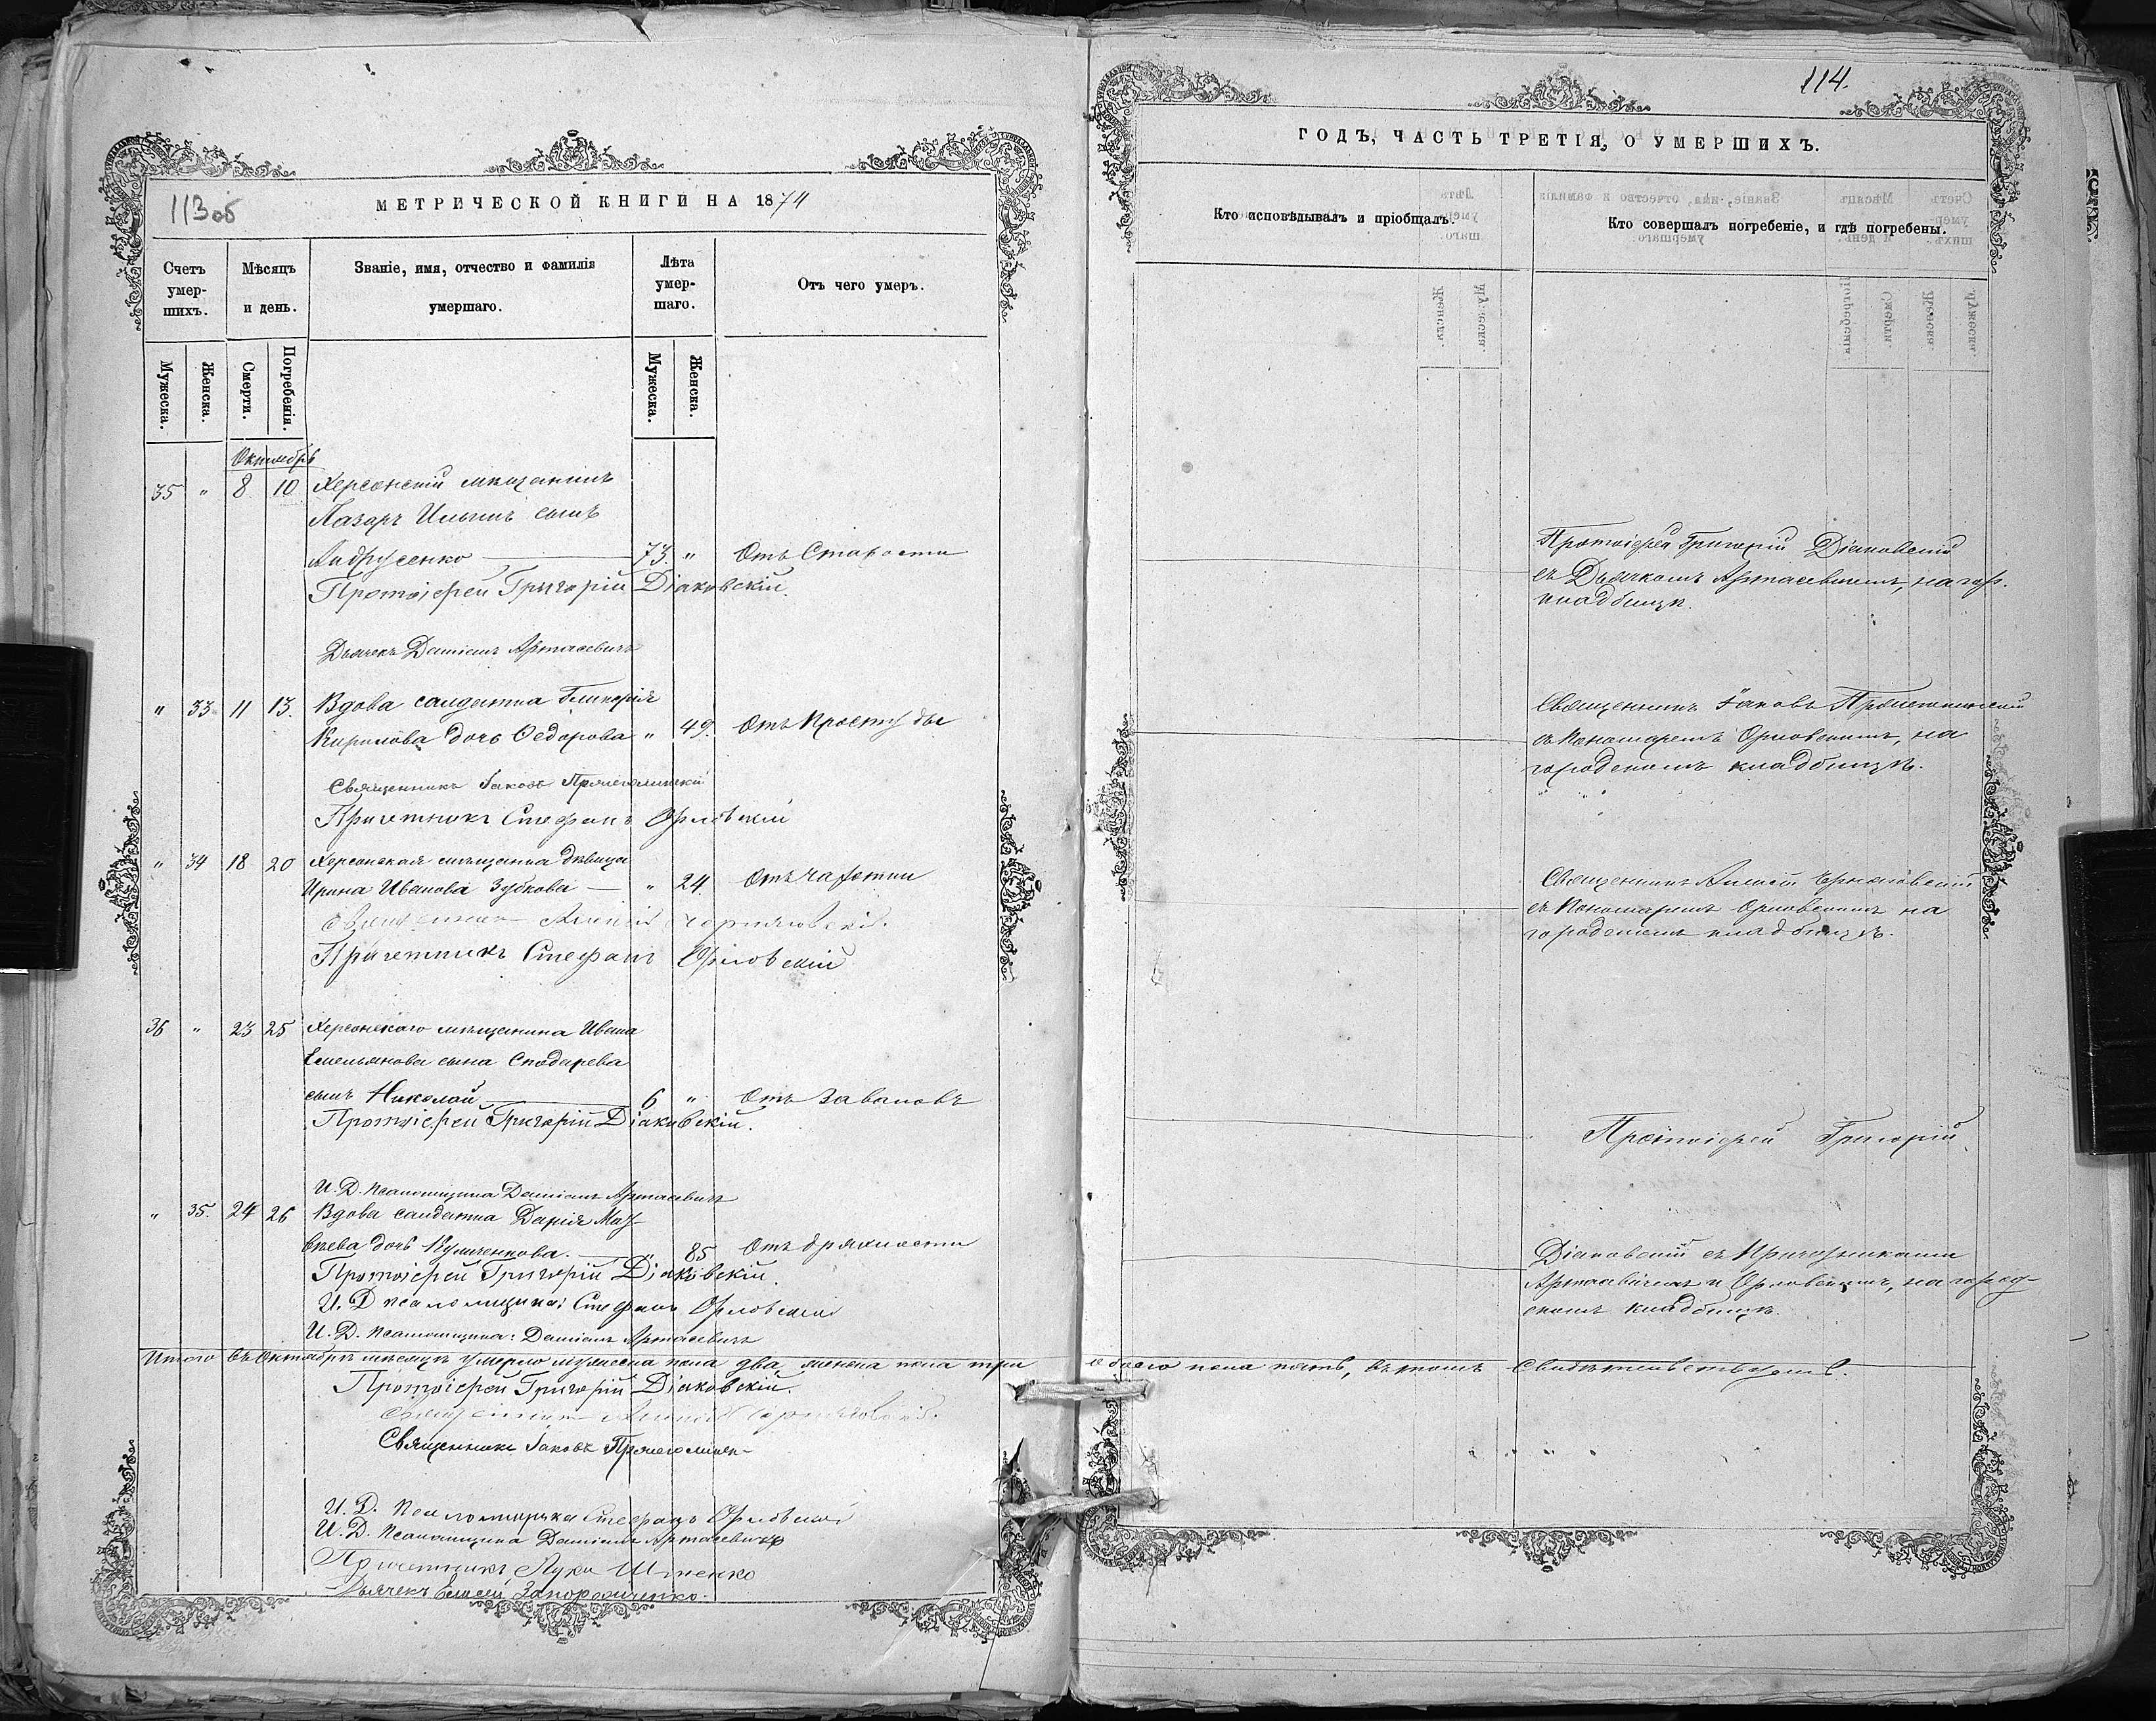 113 об
МЕТРИЧЕСКОЙ КНИГИ НА 1874
Счетъ умер-шихъ.
Мѣсяцъ и день.
Званіе, имя, отчество и фамилія умершаго.
Лѣта умер-шаго.
Отъ чего умеръ.
Мужеска.
Женска.
Смерти.
Погребенія.
Мужеска.
Женска.
Октябрь
35 " 8 10 Херсонскій мѣщанинъ
Лазарь Ильинъ сынъ
Андрусенко 73. " Отъ Старости
Протоіерей Григорій Діаковскій.
Дьячекъ Даміанъ Артасевичъ
" 33 11 13. Вдова солдатка Гликерія
Кирилова дочь Федорова " 49. Отъ Простуды
Священникъ Іаковъ
Причетникъ Стефанъ Орловскій
" 34 18 20 Херсонская мѣщанка дѣвица
Ирина Иванова Зубкова " 24. Отъ чахотки
Священникъ Алексій Черняховскій.
Причетникъ Стефанъ Орловскій
36 " 23 25 Херсонскаго мѣщанина Ивана
Емельянова сына Сподарева
сынъ Николай 6 " Отъ Заваловъ
Протоіерей Григорій Діаковскій.
И. Д. Псаломщика Даміанъ Артасевичъ
" 35. 24 26 Вдова солдатка Дарія Мат-
вѣева дочь Куличенкова. " 85 Отъ дряхлости
Протоіерей Григорій Діаковскій.
И. Д. псаломщика: Стефанъ Орловскій
И. Д. Псаломщика: Даміанъ Артасевичъ
Итого въ Октябрѣ мѣсяцѣ умерло мужеска пола два, женска пола три
Протоіерей Григорій Діаковскій.
Священникъ Алексій Черняховскій.
Священникъ Іаковъ
И. Д. Псаломщика Стефанъ Орловскій
И. Д. Псаломщика Даміанъ Артасевичъ
Причетникъ Лука
Дьячекъ Евсей Запорожченко.
114.
ГОДЪ, ЧАСТЬ ТРЕТІЯ, О УМЕРШИХЪ.
Кто исповѣдывалъ и пріобщалъ.
Кто совершалъ погребеніе, и гдѣ погребены.
Протоіерей Григорій Діаковскій
съ Дьячкомъ Артасевичемъ, на гор.
кладбищѣ.
Священникъ Іаковъ
съ Пономаремъ Орловскимъ, на
городскомъ кладбищѣ.
Священникъ Алексій Черняховскій
съ Пономаремъ Орловскимъ на
городскомъ кладбищѣ.
Протоіерей Григорій
Діаковскій съ Причетниками
Артасевичемъ и Орловскимъ, на город-
скомъ кладбищѣ.
обоего пола пять, въ томъ свидѣтельствуемъ.